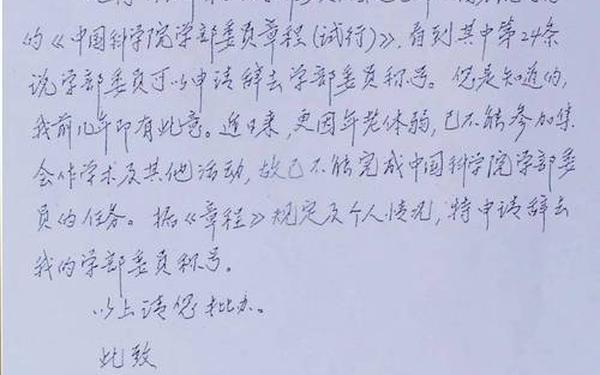 的《中国科学院学部委员章程(试行)》，看到其中第24条
说学部委员可以申请辞去学部委员称号。您是知道的，
我前几年即有此意。近日来，更因年老体弱，已不能参加集
会作学术及其他活动，故已不能完成中国科学院学部委
员的任务。据《章程》规定及个人情况，特申请辞去
我的学部委员称号。
以上请您批办。
此致